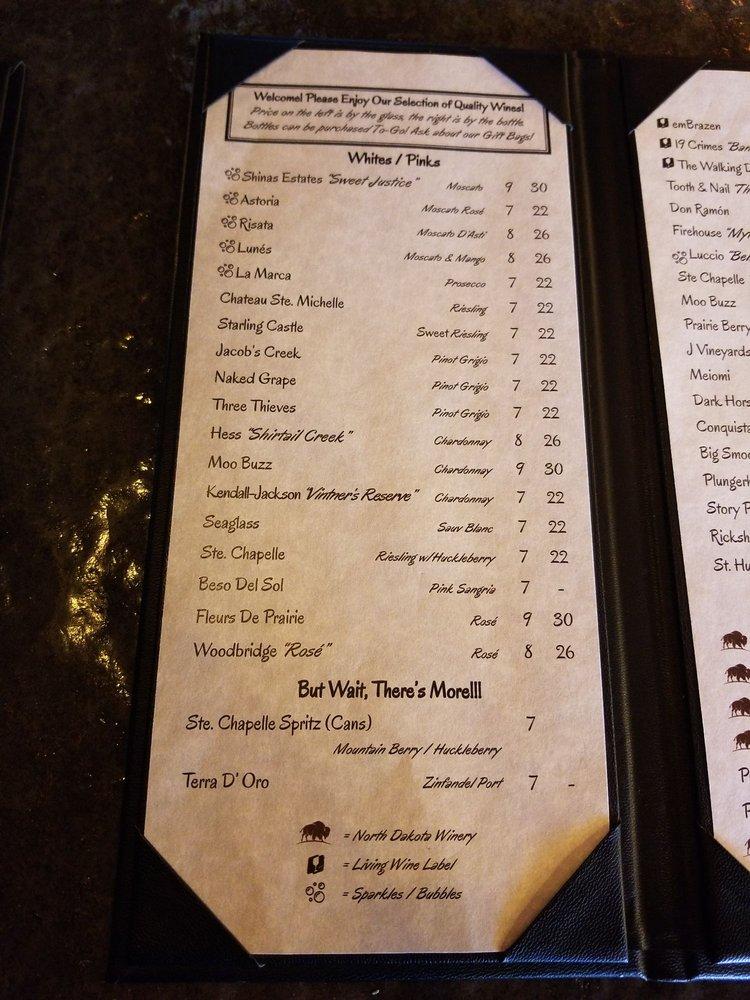 Welcome! Please Enjoy Our Selection of Quality Wines!
Price on the left is by the glass, the right is by the bottle.
Bottles can be purchased To-Go! Ask about our Gift Bags!
Whites / Pinks
Shinas Estates "Sweet Justice" Moscato 9 30
Astoria Moscato Rosé 7 22
Risata Moscato D'Asti 8 26
Lunés Moscato & Mango 8 26
La Marca Prosecco 7 22
Chateau Ste. Michelle Riesling 7 22
Starling Castle Sweet Riesling 7 22
Jacob's Creek Pinot Grigio 7 22
Naked Grape Pinot Grigio 7 22
Three Thieves Pinot Grigio 7 22
Hess "Shirtail Creek" Chardonnay 8 26
Moo Buzz Chardonnay 9 30
Kendall-Jackson "Vintner's Reserve" Chardonnay 7 22
Seaglass Sauv Blanc 7 22
Ste. Chapelle Riesling w/Huckleberry 7 22
Beso Del Sol Pink Sangria 7 -
Fleurs De Prairie Rosé 9 30
Woodbridge "Rosé" Rosé 8 26
But Wait, There's More!!!
Ste. Chapelle Spritz (Cans) 7
Mountain Berry / Huckleberry
Terra D' Oro Zinfandel Port 7 -
= North Dakota Winery
= Living Wine Label
= Sparkles / Bubbles
emBrazen
19 Crimes
The Walking
Tooth & Nail
Don Ramón
Firehouse
Luccio
Ste Chapelle
Moo Buzz
Prairie Berry
J Vineyards
Meiomi
Dark
Big
Story
St.